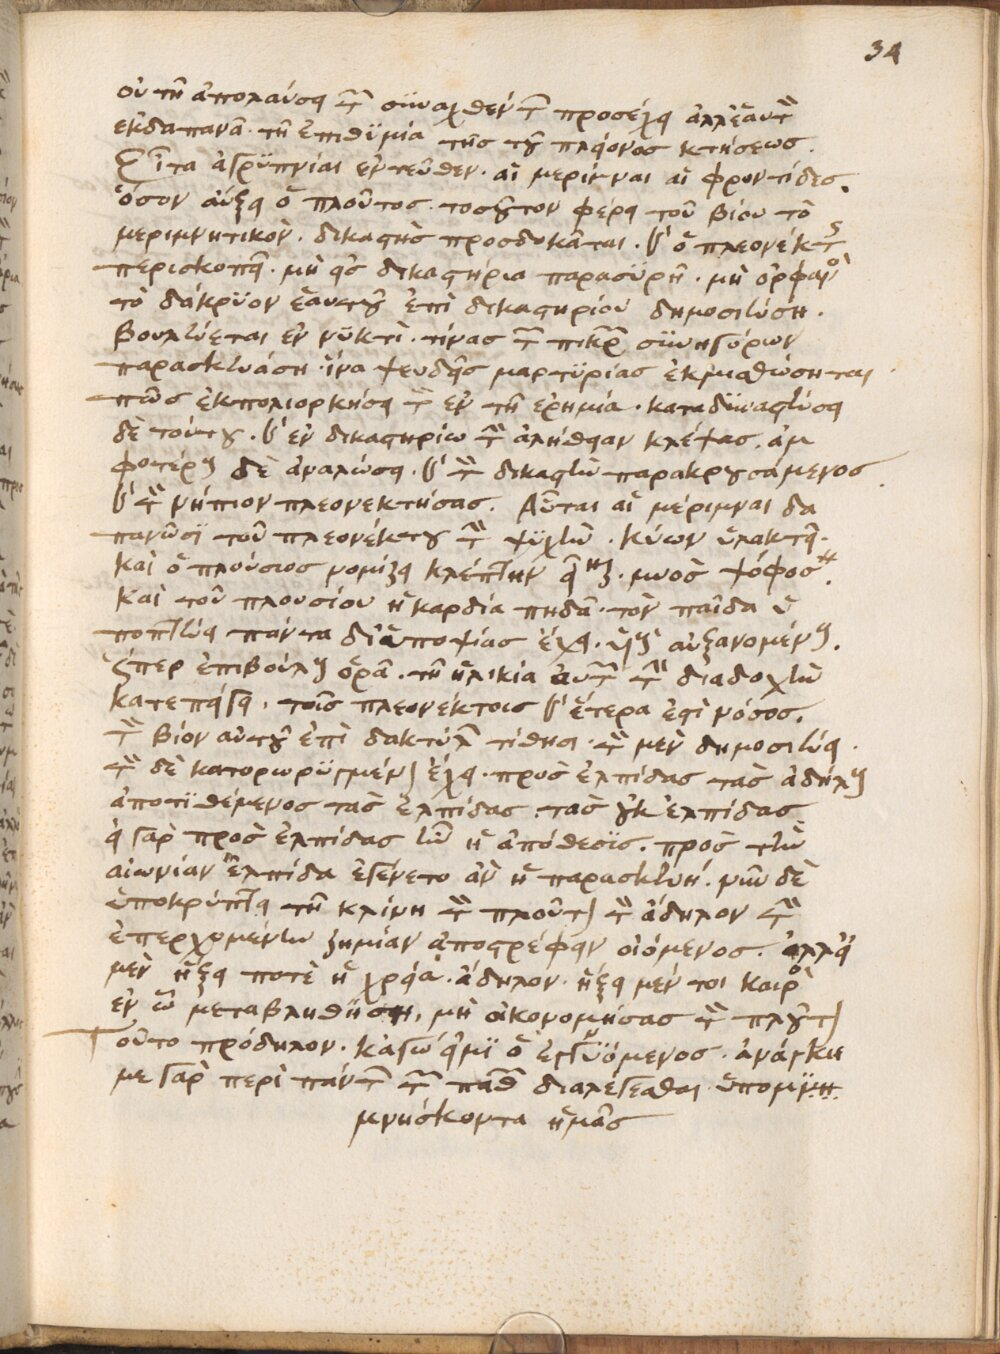 34
οὐ τῇ ἀπολαύσει τῶν συναχθέντων προσέχει ἀλλ' ἑαυτὸν
ἐκδαπανᾶ· τῇ ἐπιθυμία τῆς τοῦ πλείονος κτήσεως.
Εἶτα ἀγρϋπνίαι ἐντεῦθεν· αἱ μέριμναι αἱ φροντίδες.
ὅσον αὔξει ὁ πλοῦτος· τοσοῦτον φέρει τοῦ βίου τὸ
μεριμνητικὸν. δικαστὴς προσδοκᾶται. καὶ ὁ πλεονέκτης
περισκοπεῖ· μὴ εἰς δικαστήρια παρασύρῃ· μὴ ὀρφανοῦ
τὸ δάκρϋον ἑαυτοῦ ἐπὶ δικαστηρίου δημοσιεύση.
Βουλεύεται ἐν νϋκτὶ· τίνας τῶν πικρῶν σϋνηγόρων
παρασκευάση· ἵνα ψευδεῖς μαρτυρίας ἐκμισθώσηται
πῶς ἐκπολιορκήσει τὸν ἐν τῇ ἐρημία· καταδϋναστεύσει
δὲ τούτου. καὶ ἐν δικαστηρίω τὴν ἀλήθειαν κλέψας. ἀμ
φοτέρους δὲ ἀναλώσει· καὶ τὸν δικαστὴν παρακρουσάμενος
καὶ τὸν νήπιον πλεονεκτήσας. Αὗται αἱ μέριμναι δα
πανῶσϊ τοῦ πλεονέκτου τὴν ψϋχὴν. κύων ὑλακτεῖ·
καὶ ὁ πλούσιος νομίζει κλέπτην εἶναι· μυὸς ψόφος
καὶ τοῦ πλουσίου ἡ καρδία πηδᾶ· τὸν παῖδα ὑ
ποπτεύει πάντα δι' ὑποψίας ἔχει· υἱοὺς αὐξανομένους.
ὥσπερ ἐπιβούλους ὁρᾶ. τῇ ἡλικία αὐτῶν τὴν διαδοχὴν
κατεπείγει. τοῖς πλεονέκτοις καὶ ἑτέρα ἐστὶ νόσος.
τὸν βίον αὐτοῦ ἐπὶ δακτύλων τίθησι· τὸν μὲν δημοσιεύει.
τὸν δὲ κατορωρϋγμένον ἔχει· πρὸς ἐλπίδας τὰς ἀδήλους
ἀποτϊθέμενος τὰς ἐλπίδας τὰς οὐκ ἐλπίδας
εἰ γὰρ πρὸς ἐλπίδας ἦν ἡ ἀπόθεσϊς· πρὸς τὴν
αἰωνίαν ἐλπίδα ἐγένετο ἂν ἡ παρασκευή. νῦν δὲ
ὑποκρύπτει τῇ κλίνη τὸν πλοῦτον τὸν ἄδηλον τὴν
ἐπερχομένην ζημίαν ἀποστρέφειν οἰόμενος. ἀλλ' εἰ
μὲν ἥξει ποτὲ ἡ χρεία· ἄδηλον· ἥξει μέν τοι καιρὸς
ἐν ᾧ μεταβληθήση, μὴ οἰκονομήσας τὸν πλοῦτον
Τοῦτο πρόδηλον. κἀγὼ εἰμϊ ὁ ἐγγϋόμενος· ἀνάγκη
με γὰρ περὶ πάντων τῶν παθῶν διαλέγεσθαι ὑπομϊμ
μνήσκοντα ἡμᾶς